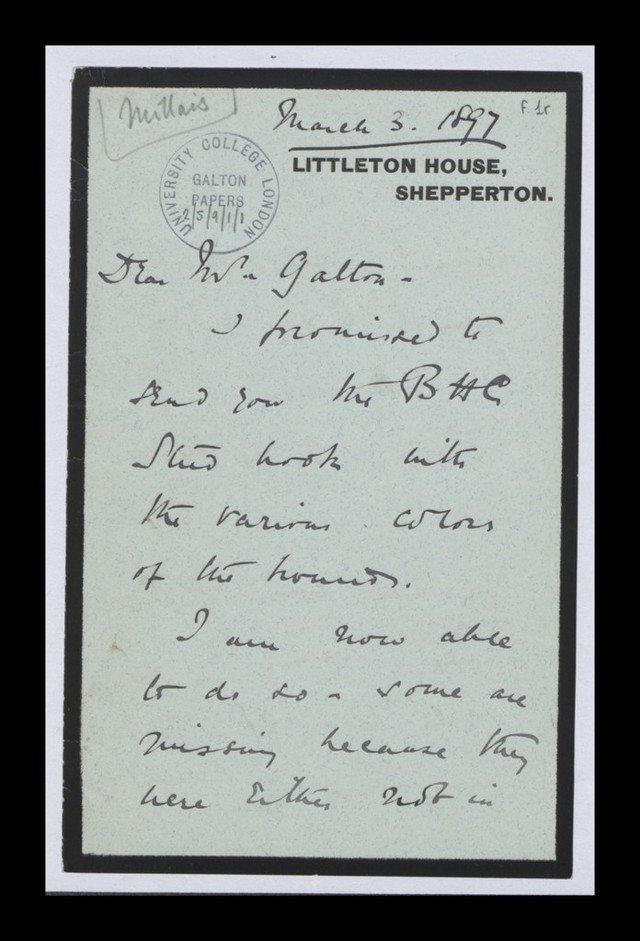 Millais
March 3. 1897
f 1r
LITTLETON HOUSE,
SHEPPERTON.
UNIVERSITY COLLEGE LONDON
GALTON
PAPERS
2/5/9/1/1
Dear Mr. Galton -
I promised to
send you the BHC
Stud book with
the various colors
of the hounds.
I am now able
to do so - some are
missing because they
were Either not in